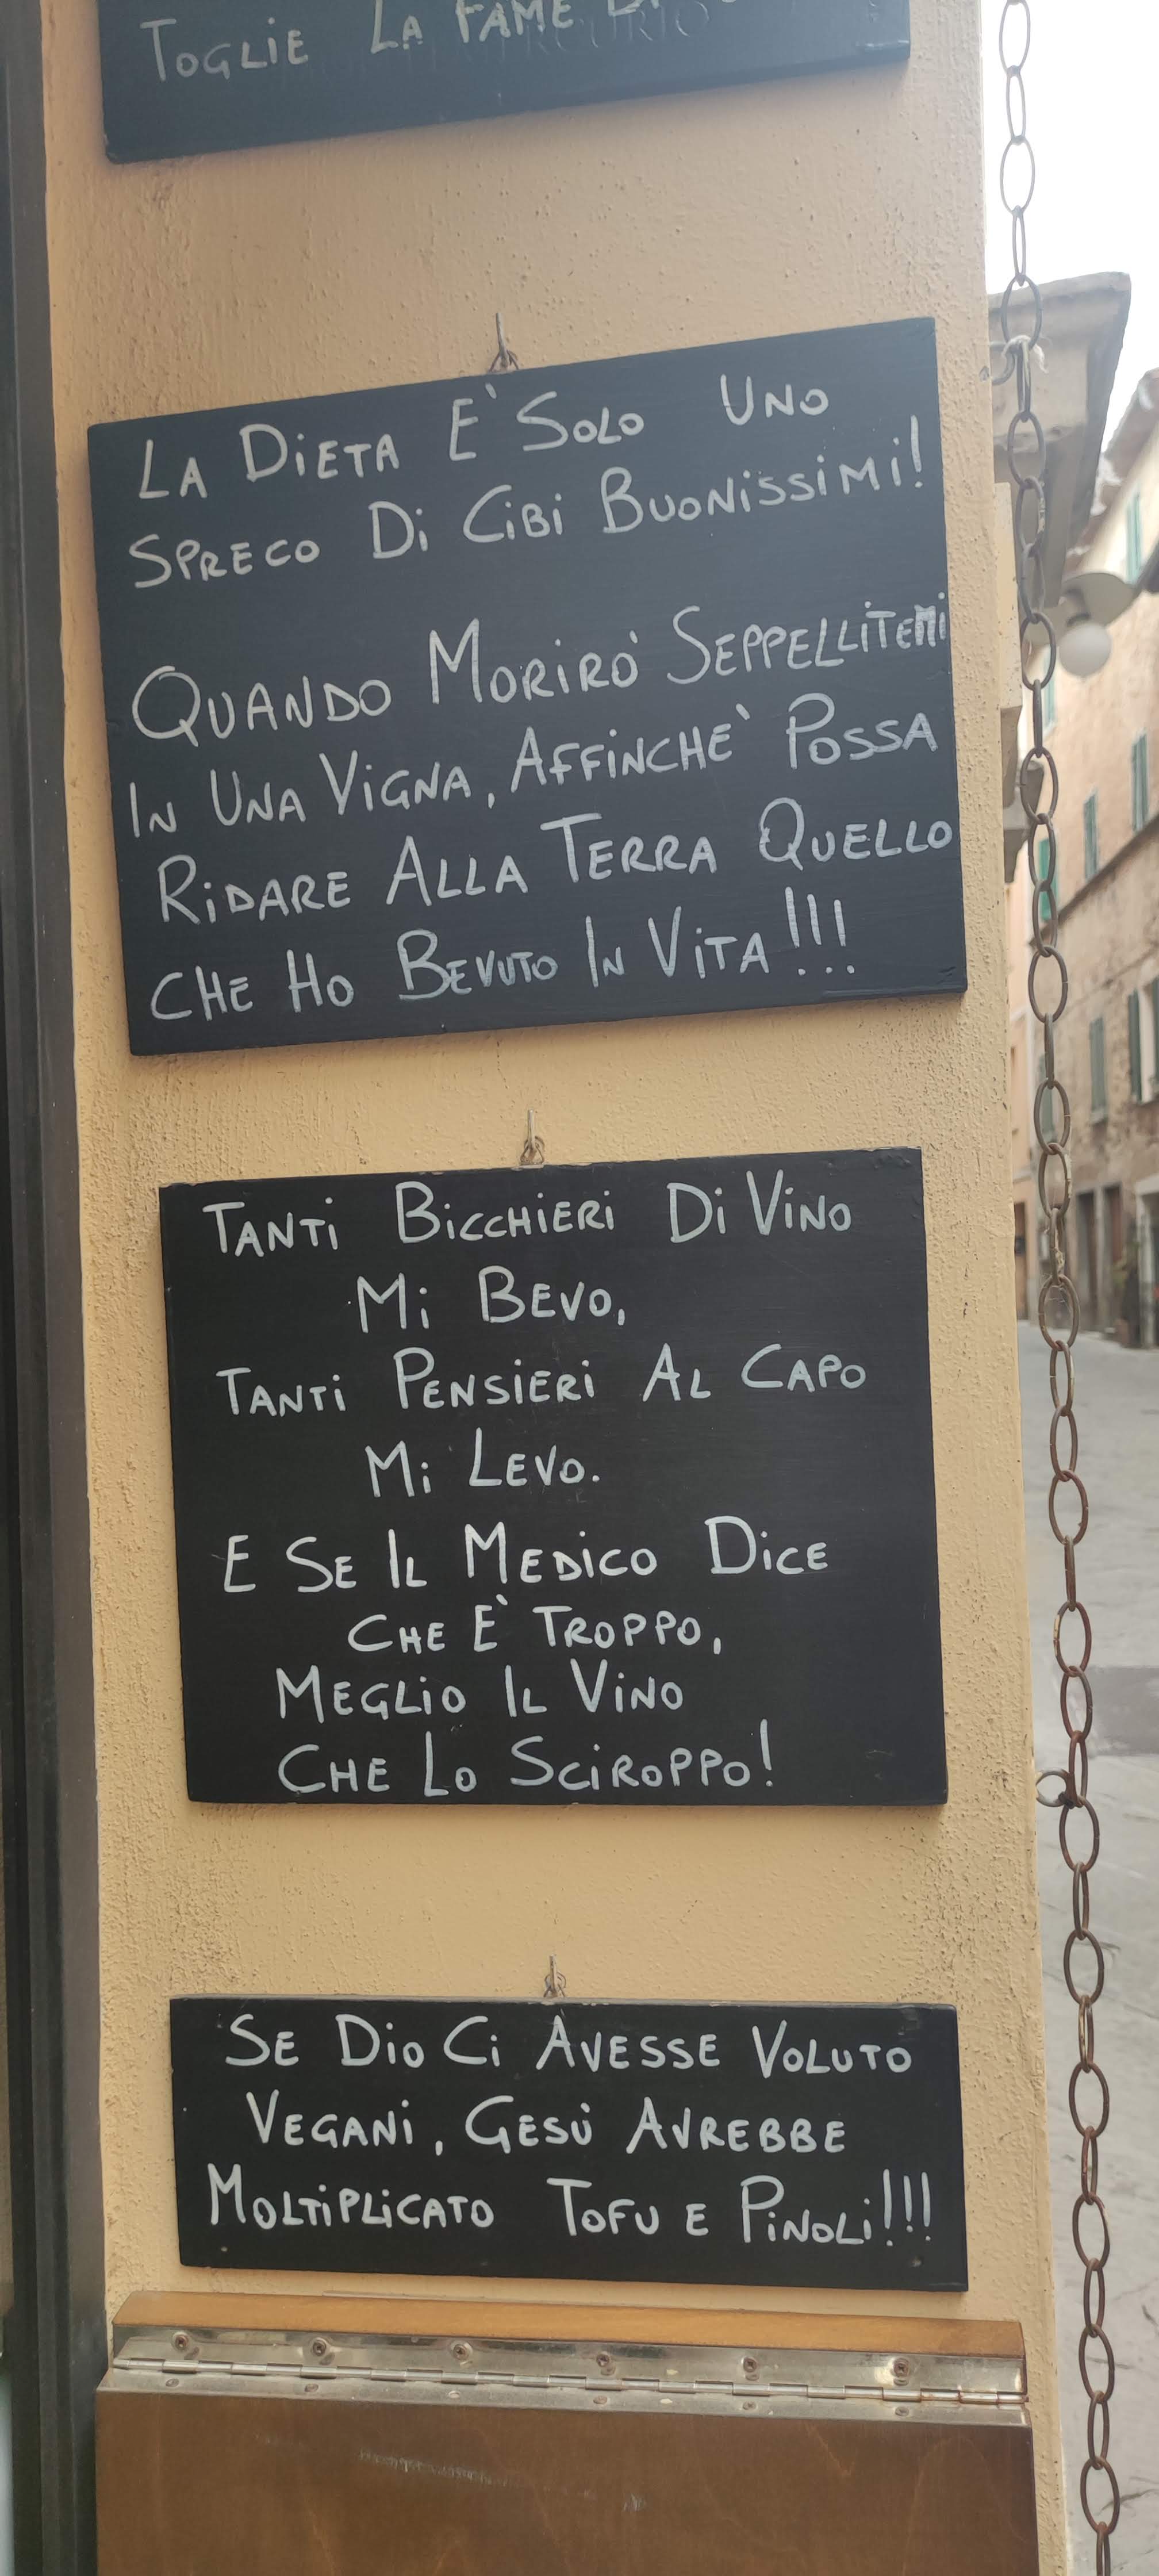 TOGLIE LA FAME
LA DIETA E' SOLO UNO
SPRECO DI CIBI BUONISSIMI!
QUANDO MORIRÒ SEPPELLITEMI
IN UNA VIGNA, AFFINCHE' POSSA
RIDARE ALLA TERRA QUELLO
CHE HO BEVUTO IN VITA!!!
TANTI BICCHIERI DI VINO
MI BEVO,
TANTI PENSIERI AL CAPO
MI LEVO.
E SE IL MEDICO DICE
CHE E' TROPPO,
MEGLIO IL VINO
CHE LO SCIROPPO!
SE DIO CI AVESSE VOLUTO
VEGANI, GESÙ AVREBBE
MOLTIPLICATO TOFU E PINOLI!!!